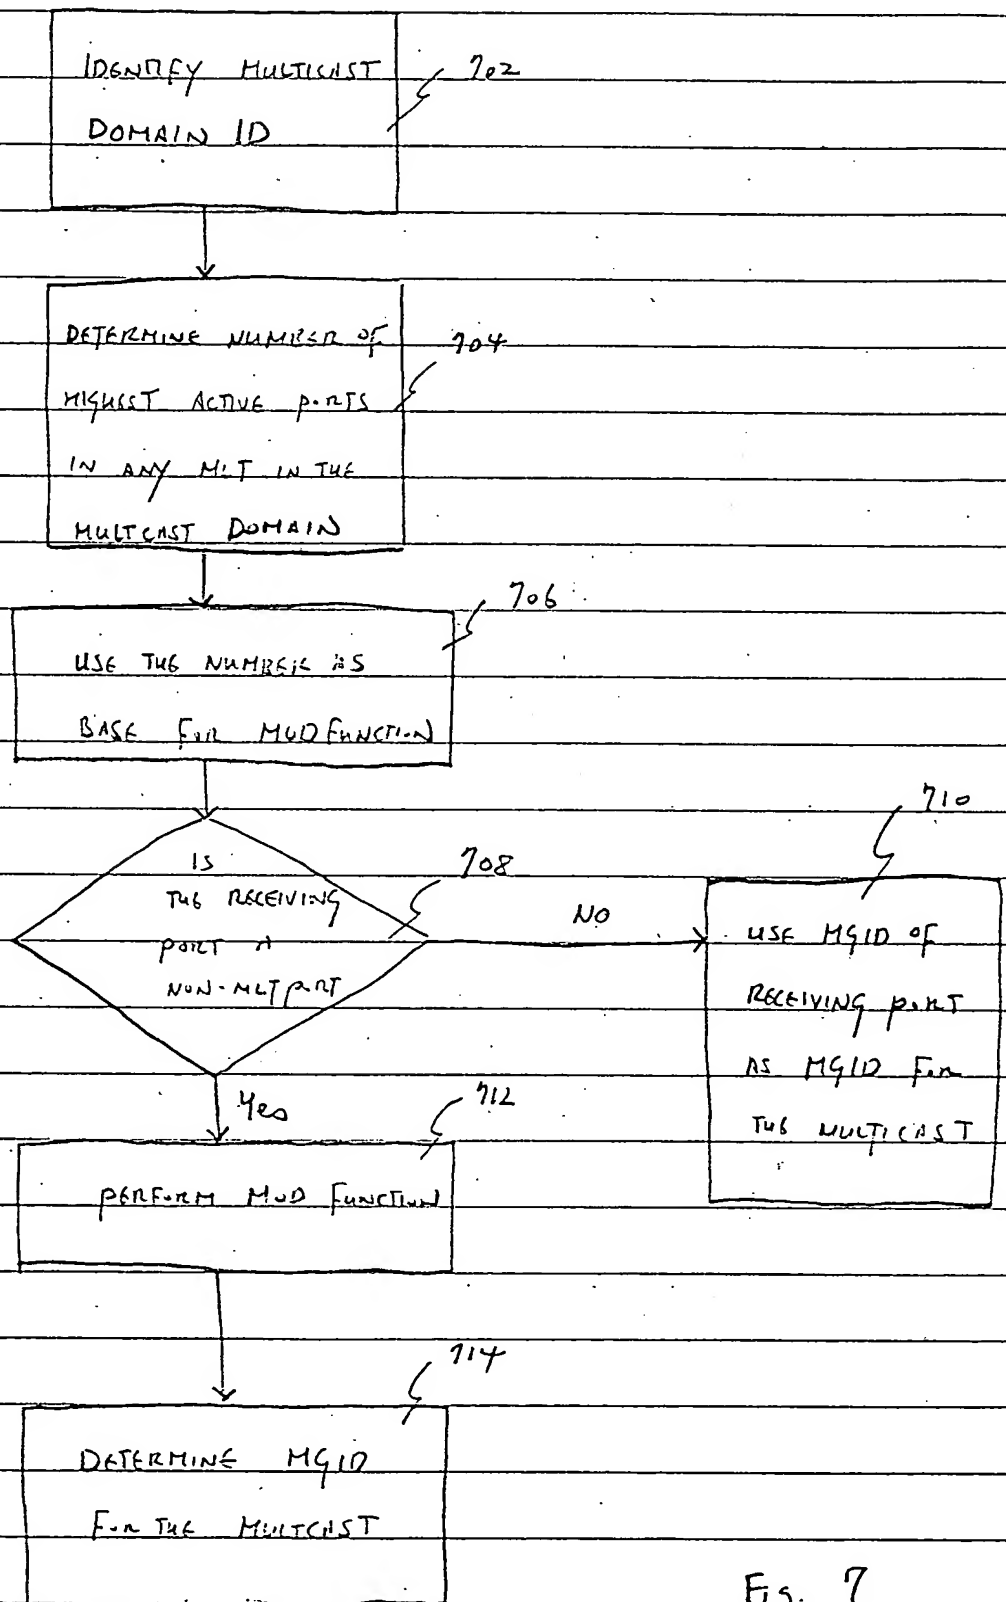 IDENTIFY MULTICAST
702
DOMAIN ID
DETERMINE NUMBER OF
704
HIGHEST ACTIVE PORTS
IN ANY MLT IN THE
MULTCAST DOMAIN
706
USE THE NUMBER AS
BASE FOR MOD FUNCTION
IS
708
THE RECEIVING
PORT A
NON-MLT PORT
NO
710
USE MGID OF
RECEIVING PORT
AS MGID FOR
THE MULTICAST
Yes
712
PERFORM MOD FUNCTION
714
DETERMINE MGID
FOR THE MULTCAST
Fig. 7